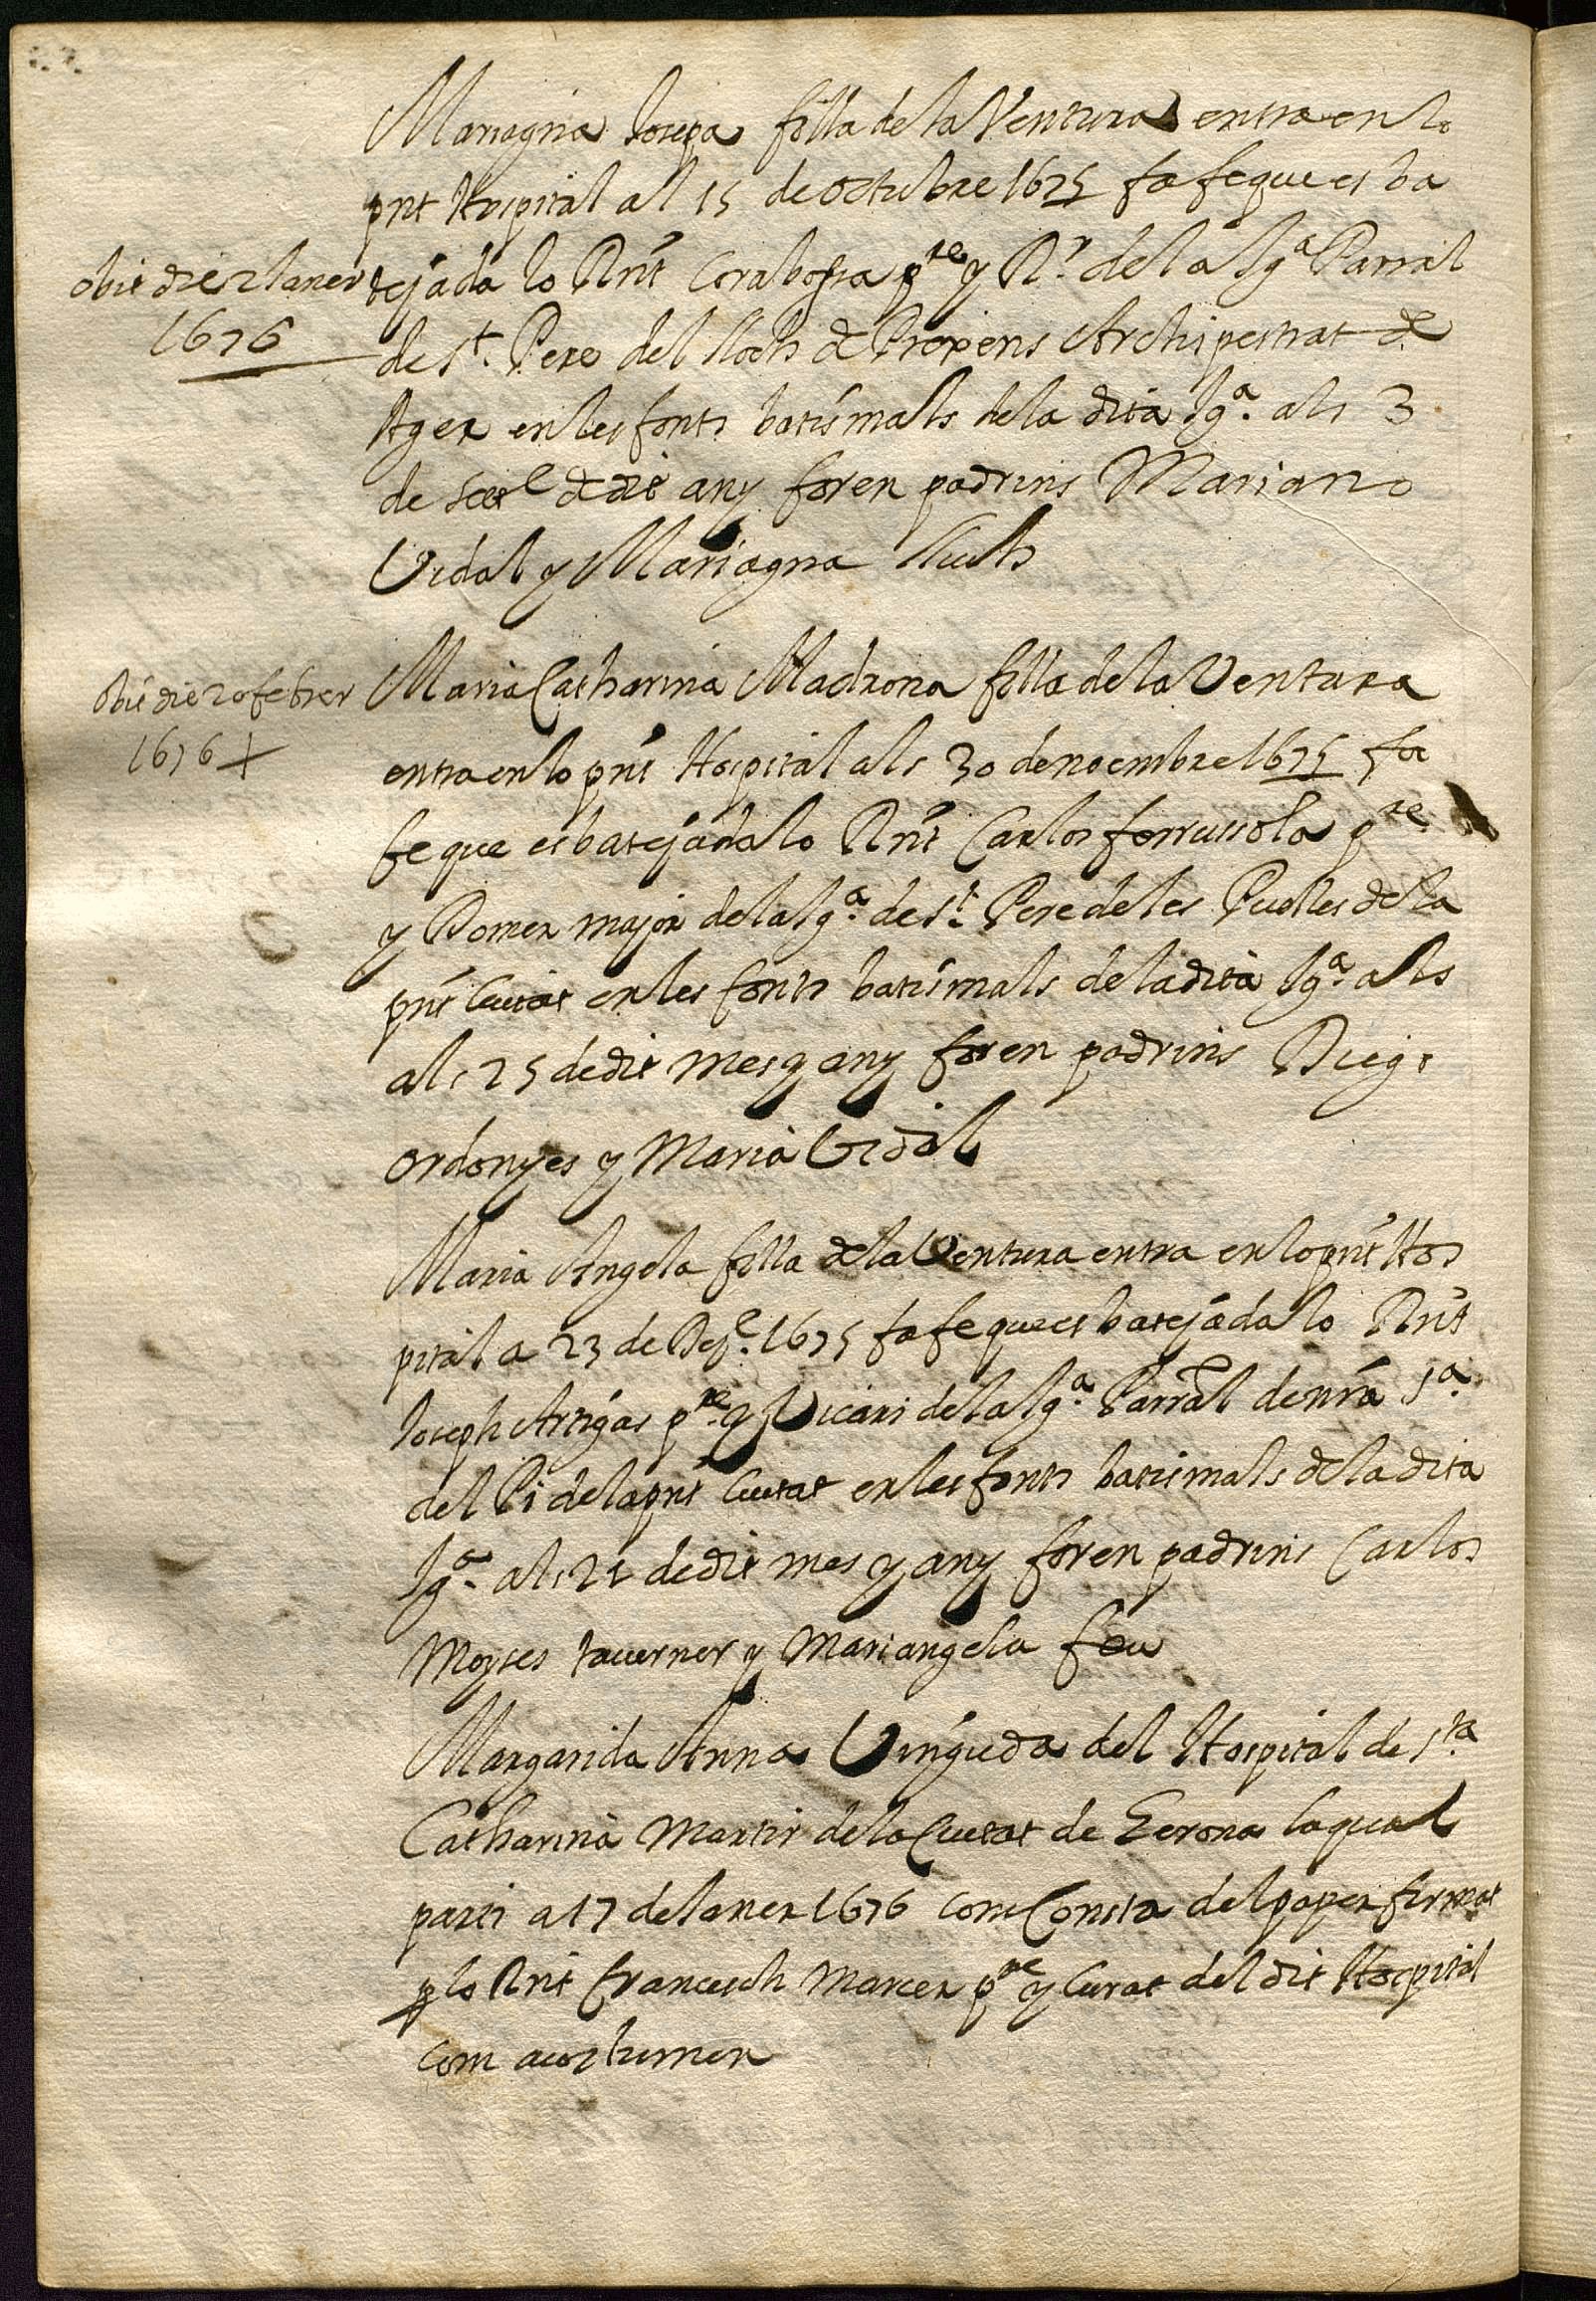 Mariagna Josepa filla de la Ventura entra en lo
pnt Hospital al 15 de octubre 1675 fa fe que es ba
obit die 2 Janer
1676
tejada lo Rnt Corabossa pre y Rr de la Iga Parral
de St. Pere del lloch de Prexens Archiprestat de
Ager en les fonts batismals de la dita Iga. als 3
de dit any foren padrins Mariano
Vidal y Mariagna Lluch
obit die 20 febrer
1676 +
Maria Catharina Madrona filla de la Ventura
entra en lo pnt Hospital als 30 de noembre 1675 fa
fe que es batejada lo Rnt Carlos forrussola pre
y Domer major de la Iga. de St. Pere de les Puelles de la
pnt Ciutat en les fonts batismals de la dita Iga. als
als 25 de dit mes y any foren padrins Diego
ordonyes y Maria Vidal
Maria Angela filla de la Ventura entra en lo pnt Hos
pital a 23 de Dese. 1675 fa fe que es batejada lo Rnt
Joseph Artigas pre. y Vicari de la Iga Parral de nra Sa.
del Pi de la pnt Ciutat en les fonts batismals de la dita
Iga. als 21 de dit mes y any foren padrins Carlos
Moyses tauerner y Mariangela feu
Margarida Anna Vinguda del Hospital de Sta
Catharina Martir de la Ciutat de Gerona la qual
parti a 17 de Janer 1676 com Consta del paper firmat
p lo Rnt francesch Marcer pre y Curat del dit Hospital
com acostumen